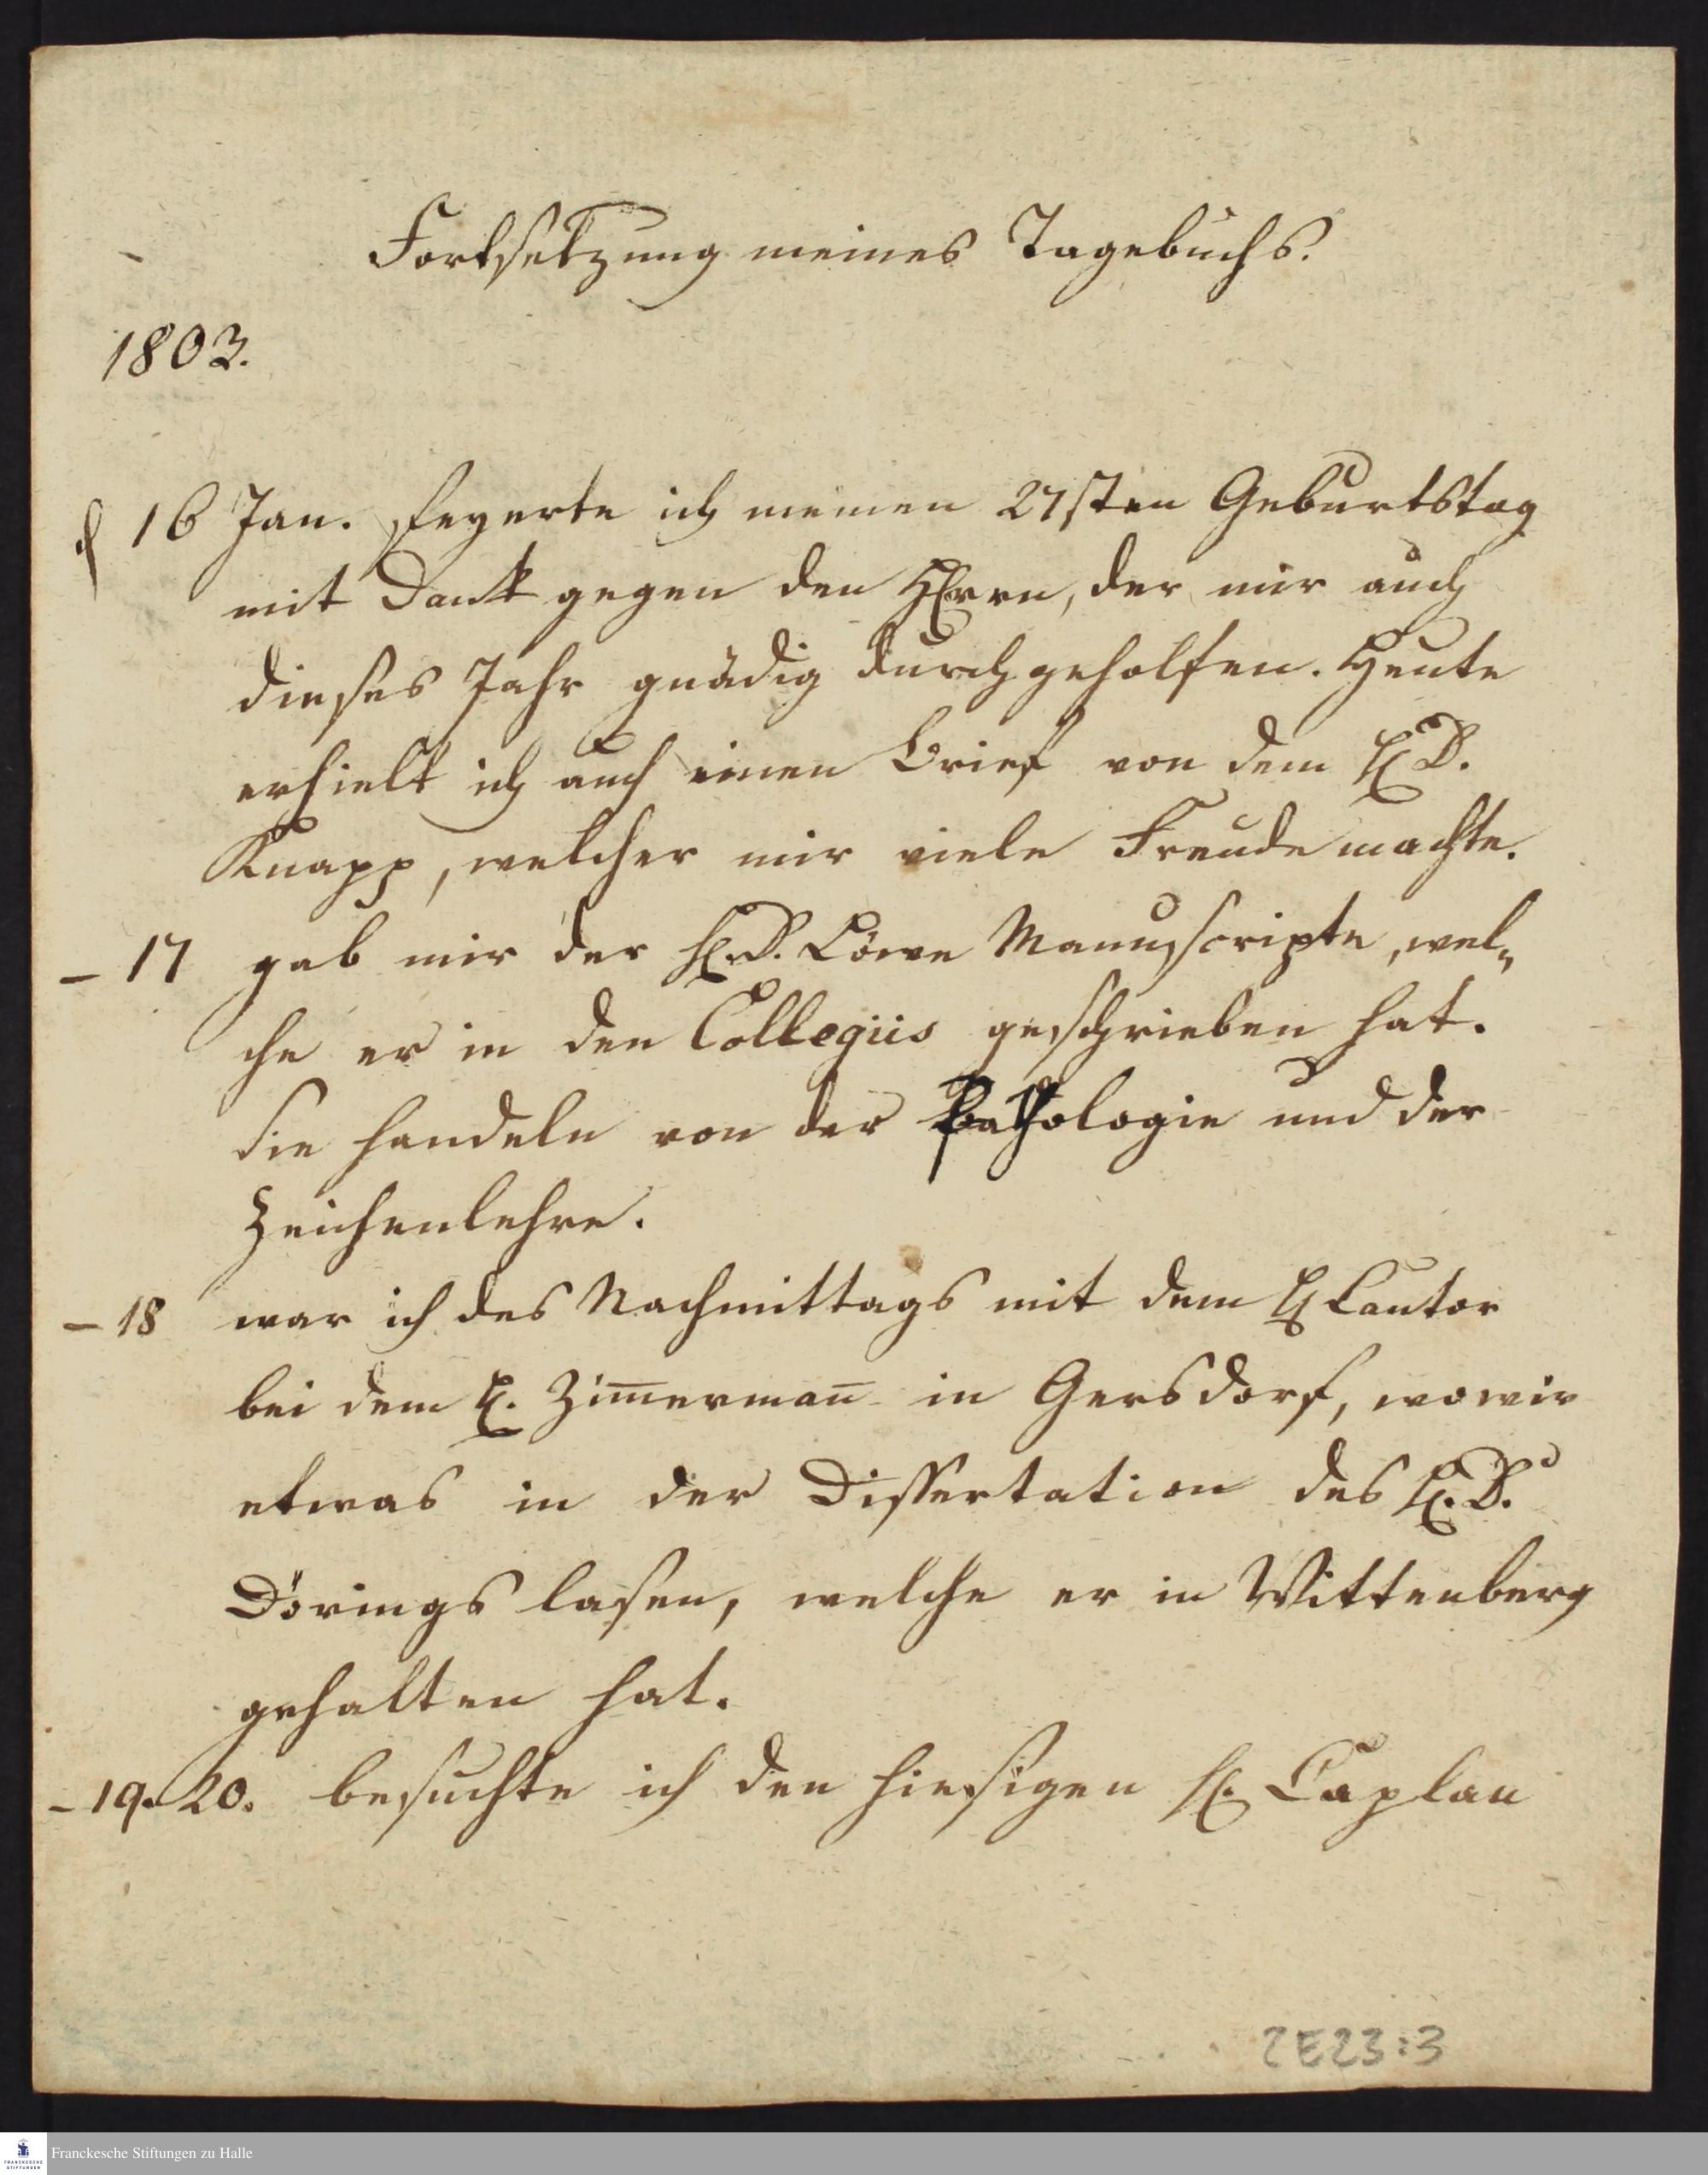 Fortsetzung meines Tagebuchs.
1803.
d 16 Jan. feyerte ich meinen 27sten Geburtstag
mit Dank gegen den HErrn, der mir auch
dieses Jahr gnädig durchgeholfen. Heute
erhielt ich auch einen Brief von dem H D.
Knapp, welcher mir viele Freude machte.
– 17 gab mir der H. D. Löwe Manuscripte, wel„
che er in den Collegiis geschrieben hat.
Sie handeln von der Pathologie und der
Zeichenlehre.
– 18 war ich des Nachmittags mit dem H Cantor
bei dem H. Zim̅erman̅ in Gersdorf, wo wir
etwas in der Dissertation des H. D.
Dörings lasen, welche er in Wittenberg
gehalten hat.
– 19. 20. besuchte ich den hiesigen H. Caplan
2E23:3
Franckesche Stiftungen zu Halle
FRANCKESCHE
STIFTUNGEN